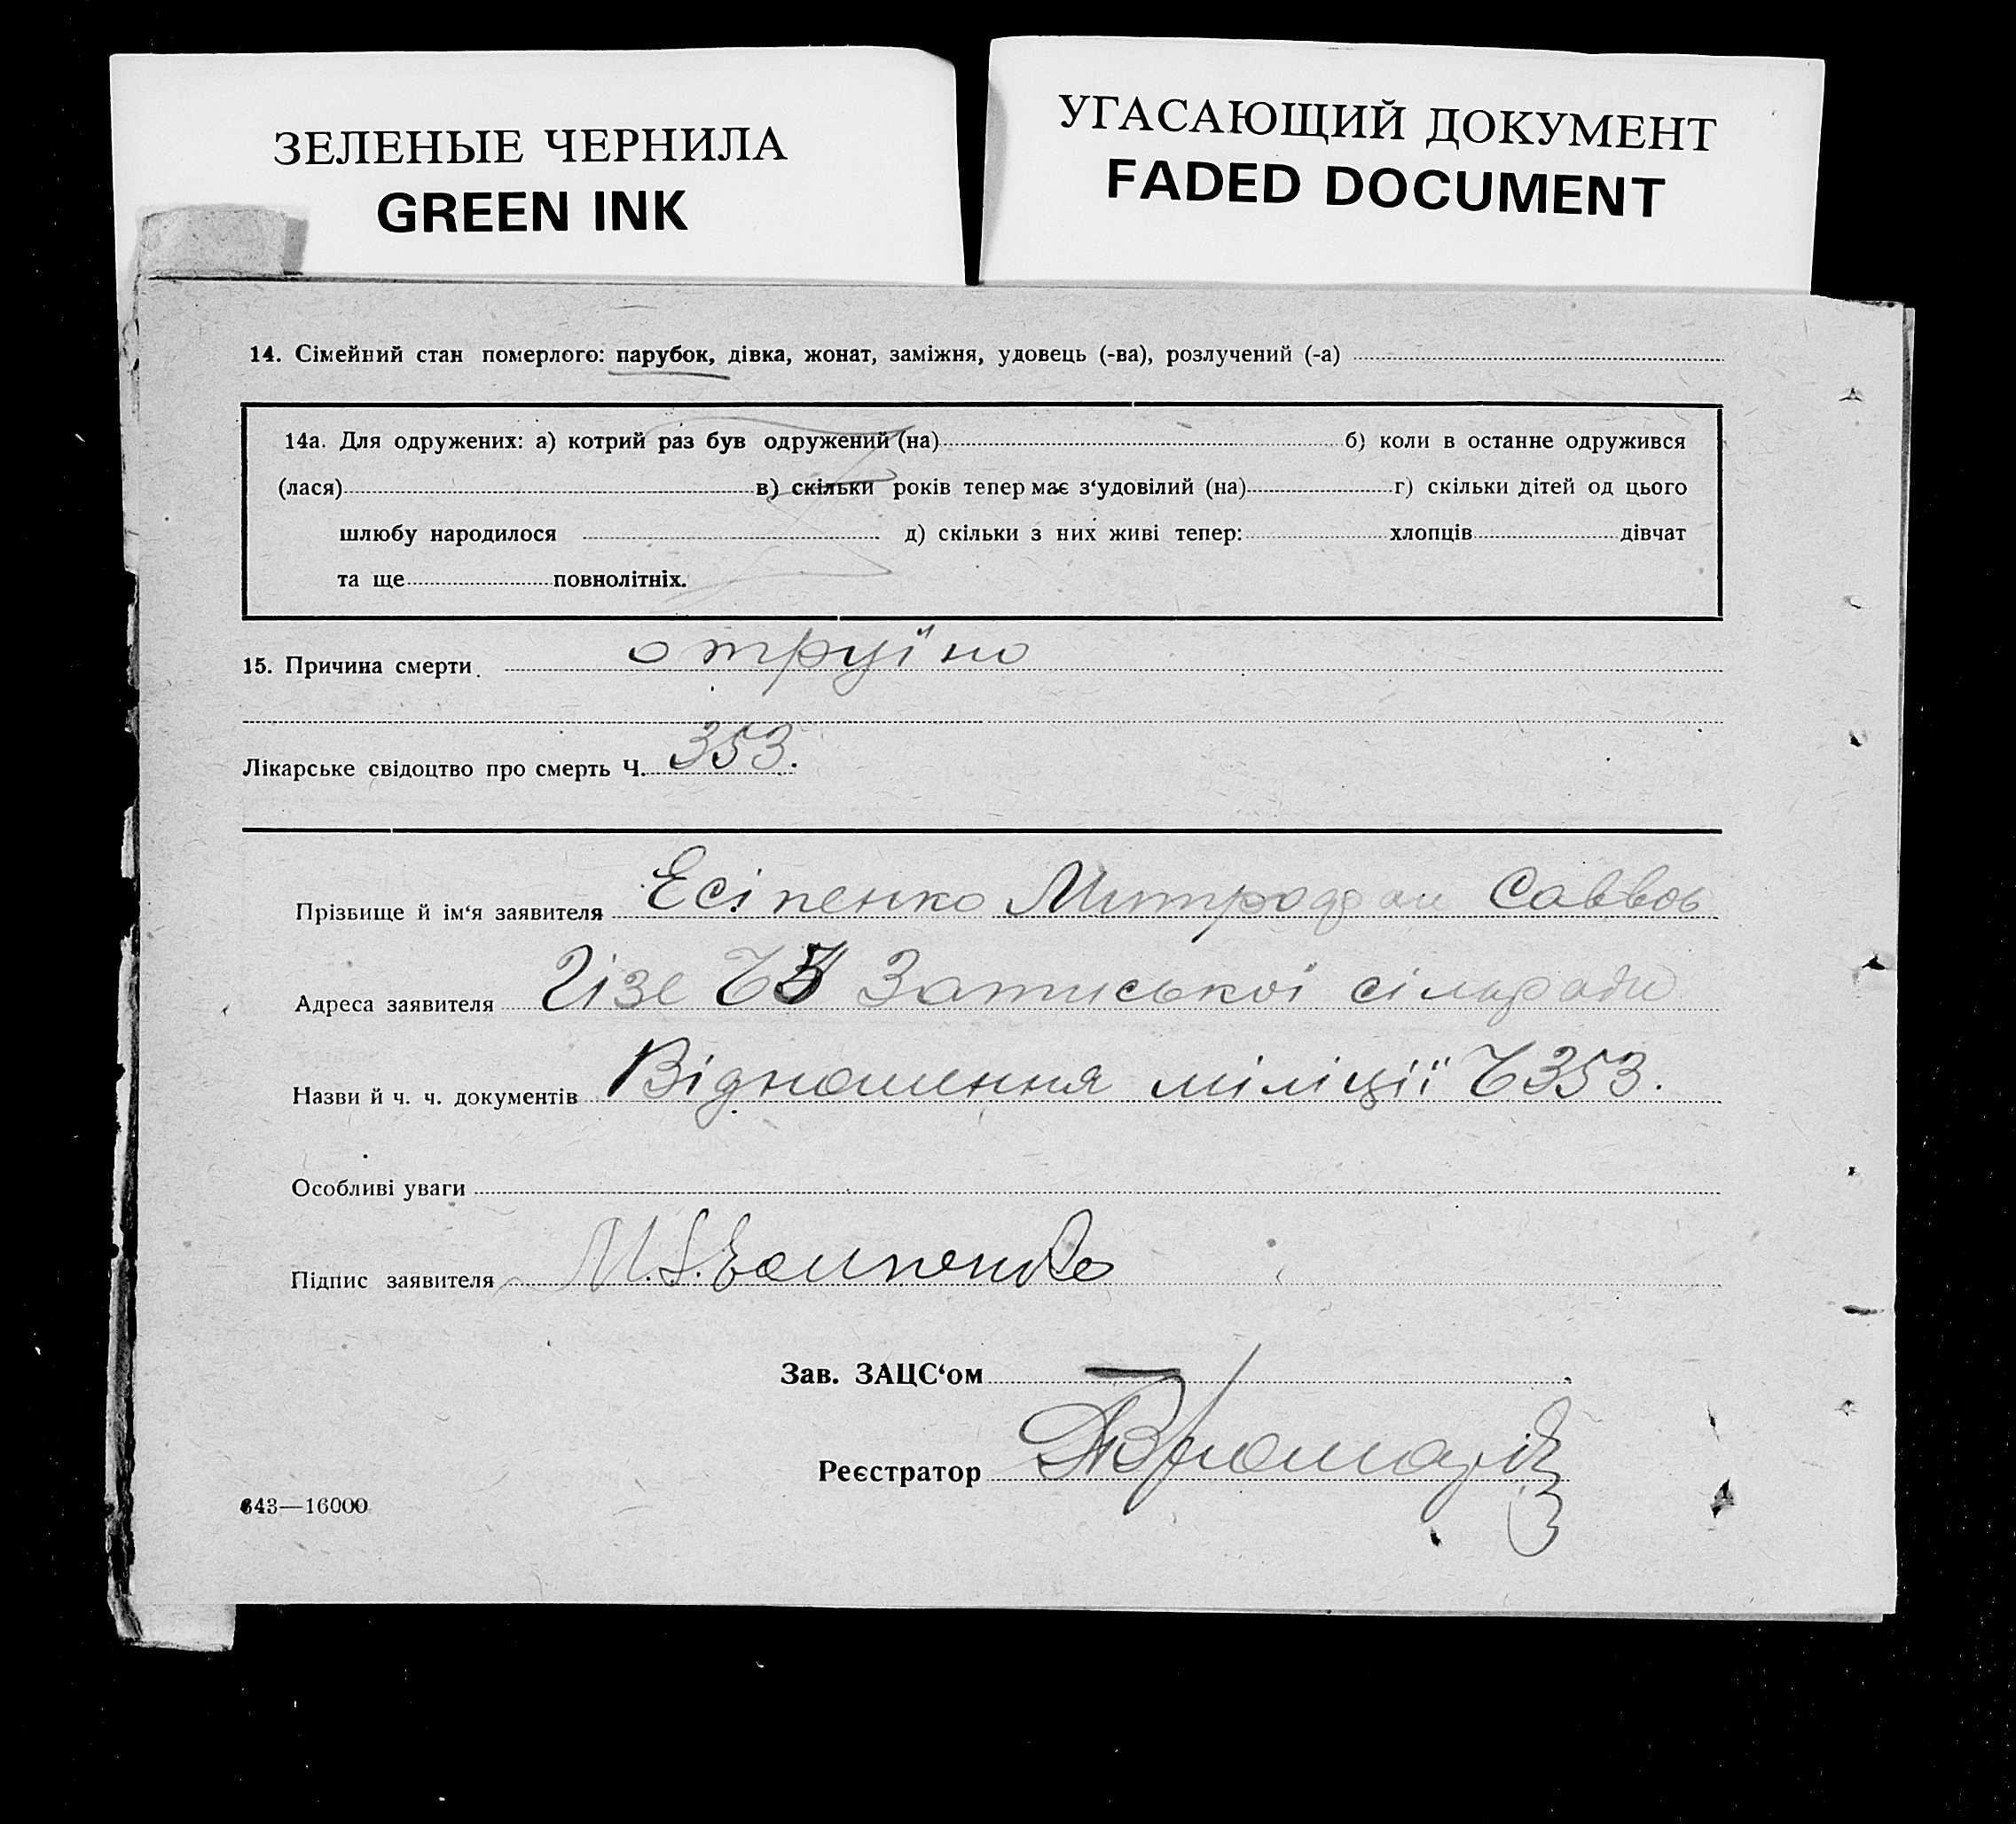 ЗЕЛЕНЫЕ ЧЕРНИЛА
GREEN INK
УГАСАЮЩИЙ ДОКУМЕНТ
FADED DOCUMENT
14. Сімейний стан померлого: парубок, дівка, жонат, заміжня, удовець (-ва), розлучений (-а)
14а. Для одружених: а) котрий раз був одружений (на) б) коли в останне одружився
(лася) в) скільки років тепер має з‘удовілий (на) г) скільки дітей од цього
шлюбу народилося д) скільки з них живі тепер: хлопців дівчат
та ще повнолітніх.
15. Причина смерти отруїно
Лікарське свідоцтво про смерть Ч. 353.
Прізвище й ім‘я заявителя Есіпенко Митрофан Саввов
Адреса заявителя Ч Затиської сільради
Назви й ч. ч. документів Відношення міліції Ч 353.
Особливі уваги
Підпис заявителя М. Есипенко
Зав. ЗАЦС‘ом
Реєстратор
643—16000